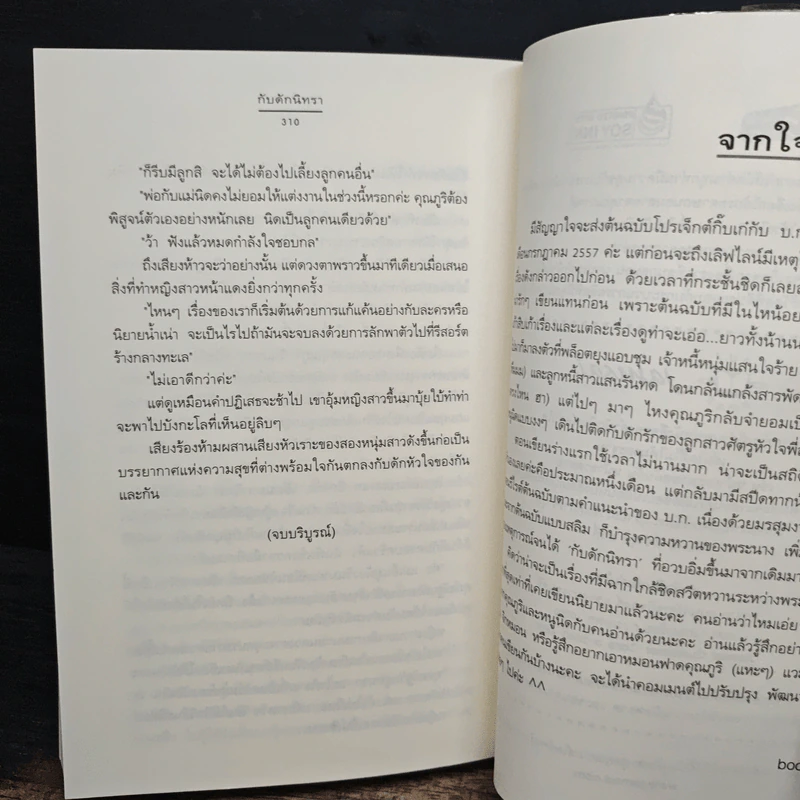 กับดักนิทรา
310
"ก็รีบมีลูกสิ จะได้ไม่ต้องไปเลี้ยงลูกคนอื่น"
"พ่อกับแม่นิดคงไม่ยอมให้แต่งงานในช่วงนี้หรอกค่ะ คุณภูริต้อง
พิสูจน์ตัวเองอย่างหนักเลย นิดเป็นลูกคนเดียวด้วย"
"ว้า ฟังแล้วหมดกำลังใจชอบกล"
ถึงเสียงห้าวจะว่าอย่างนั้น แต่ดวงตาพราวขึ้นมาทีเดียวเมื่อเสนอ
สิ่งที่ทำหญิงสาวหน้าแดงยิ่งกว่าทุกครั้ง
"ไหนๆ เรื่องของเราก็เริ่มต้นด้วยการแก้แค้นอย่างกับละครหรือ
นิยายน้ำเน่า จะเป็นไรไปถ้ามันจะจบลงด้วยการลักพาตัวไปที่รีสอร์ต
ร้างกลางทะเล"
"ไม่เอาดีกว่าค่ะ"
แต่ดูเหมือนคำปฏิเสธจะช้าไป เขาอุ้มหญิงสาวขึ้นมาบุ้ยใบ้ทำท่า
จะพาไปบังกะโลที่เห็นอยู่ลิบๆ
เสียงร้องห้ามผสานเสียงหัวเราะของสองหนุ่มสาวดังขึ้นก่อเป็น
บรรยากาศแห่งความสุขที่ต่างพร้อมใจกันตกลงกับดักหัวใจของกัน
และกัน
(จบบริบูรณ์)
จากใจ
มีสัญญาใจจะส่งต้นฉบับโปรเจ็กต์กิ๊บเก๋กับ บ.ก
กรกฎาคม 2557 ค่ะ แต่ก่อนจะถึงเดิฟไลน์มีเหตุ
ดังกล่าวออกไปก่อน ด้วยเวลาที่กระชั้นชิดก็เลย
เขียนแทนก่อน เพราะต้นฉบับที่มีในไหน้อย
เรื่องและแต่ละเรื่องดูท่าจะเอ่อ...ยาวทั้งน้าน
มาลงตัวที่พล็อตยุงแอบชุม เจ้าหนี้หนุ่มแสนใจร้าย
และลูกหนี้สาวแสนรันทด โดนกลั่นแกล้งสารพัด
ฮา) แต่ไปๆ มาๆ ไหงคุณภูริกลับจำยอมเป็
แบบงงๆ เดินไปติดกับดักรักของลูกสาวศัตรูหัวใจ
ตอนเขียนร่างแรกใช้เวลาไม่นานมาก น่าจะเป็นสถิ
เลยค่ะคือประมาณหนึ่งเดือน แต่กลับมามีสปีด
ต้นฉบับตามคำแนะนำของ บ.ก. เนื่องด้วยมรสุม
จากต้นฉบับแบบสลิม ก็บำรุงความหวานของพระนาง เพิ่
เหตุการณ์จนได้ 'กับดักนิทรา' ที่อวบอิ่มขึ้นมาจากเดิม
คิดว่าน่าจะเป็นเรื่องที่มีฉากใกล้ชิดสวีตหวานระหว่างพระ
ที่สุดเท่าที่เคยเขียนนิยายมาแล้วนะคะ คนอ่านว่าไหมเอ่ย
คุณภูริและหนูนิดกับคนอ่านด้วยนะคะ อ่านแล้วรู้สึกอย่า
หมอน หรือรู้สึกอยากเอาหมอนฟาดคุณภูริ (แหะๆ) แว
เขียนกันบ้างนะคะ จะได้นำคอมเมนต์ไปปรับปรุง พัฒน
ๆ ไปค่ะ ^^
boo